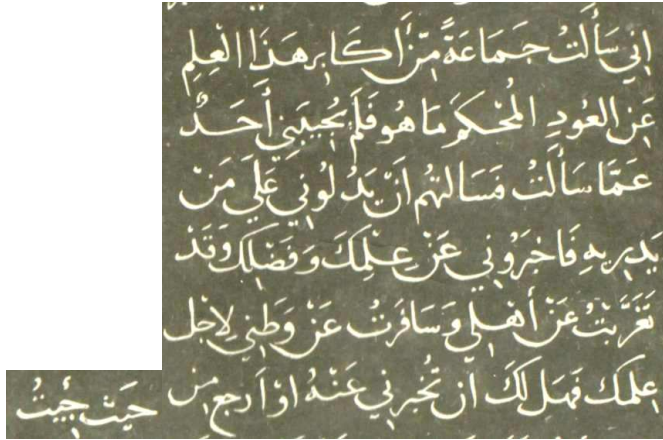 اني سَأَلتُ جَمَاعَةً مِّنْ أَكَابِر هَذَا الْعِلِمِ
عَنِ العُودِ المُحْكَمَ مَا هُو فَلَمْ يُجِيبَنِي أَحَدٌ
عَمَّا سَالَتُ فَسَالتهُم اَنْ يَدُلُوني عَلَي مَنْ
يَدرِيهِ فَاخْبَرُوني عَنْ عِلمِكَ وَفَضْلِكَ وَقَدْ
تَغَرَّبْتُ عَنْ أَهْلِي وَسَافَرتُ عَنْ وَطِني لِاجل
عِلمك فَهَل لَكَ اَنْ تُخبرني عَنْهُ اوْ اَرجع مِن حَيثُ جِيتُ